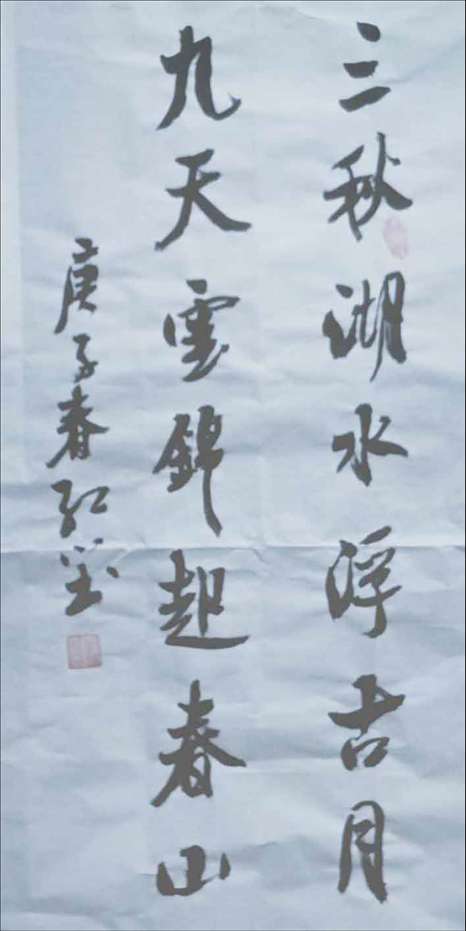 三秋湖水浮古月
九天雲錦起春山
庚子春红玺